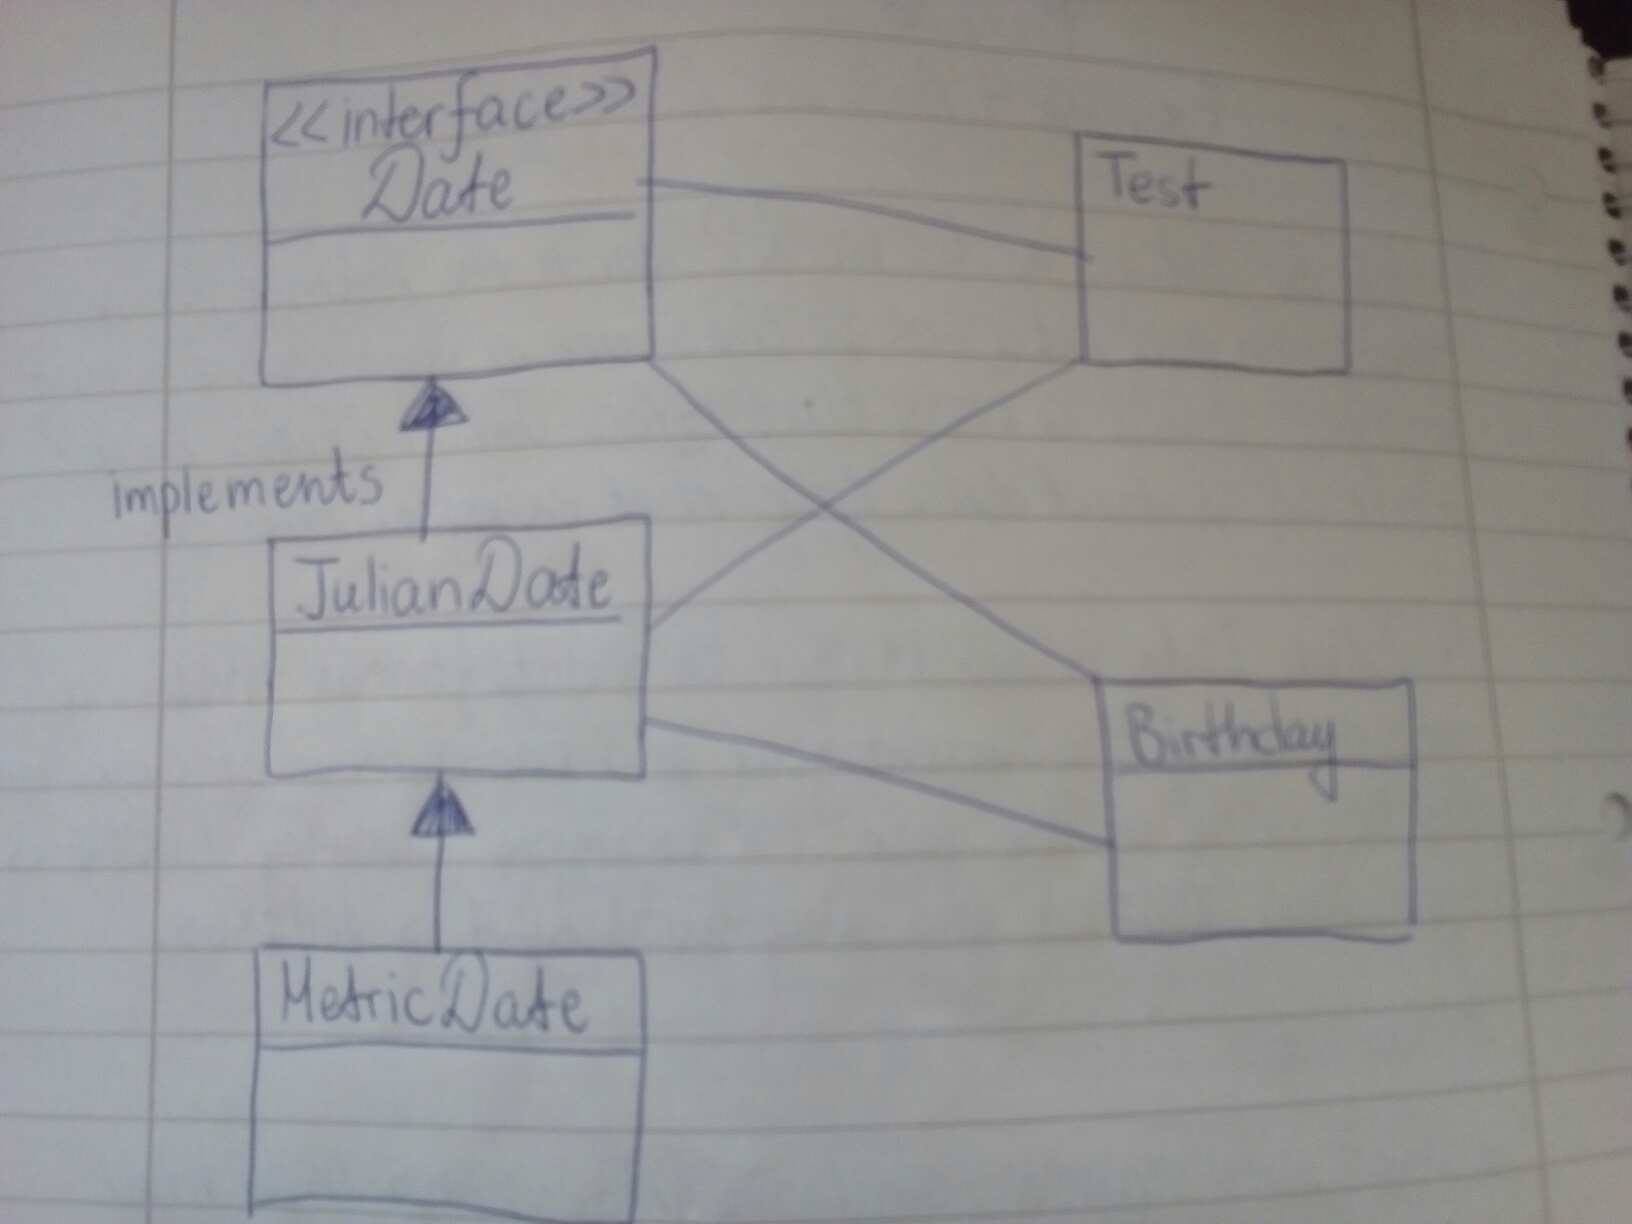 <<interface>>
Date
Test
implements
JulianDate
Birthday
MetricDate